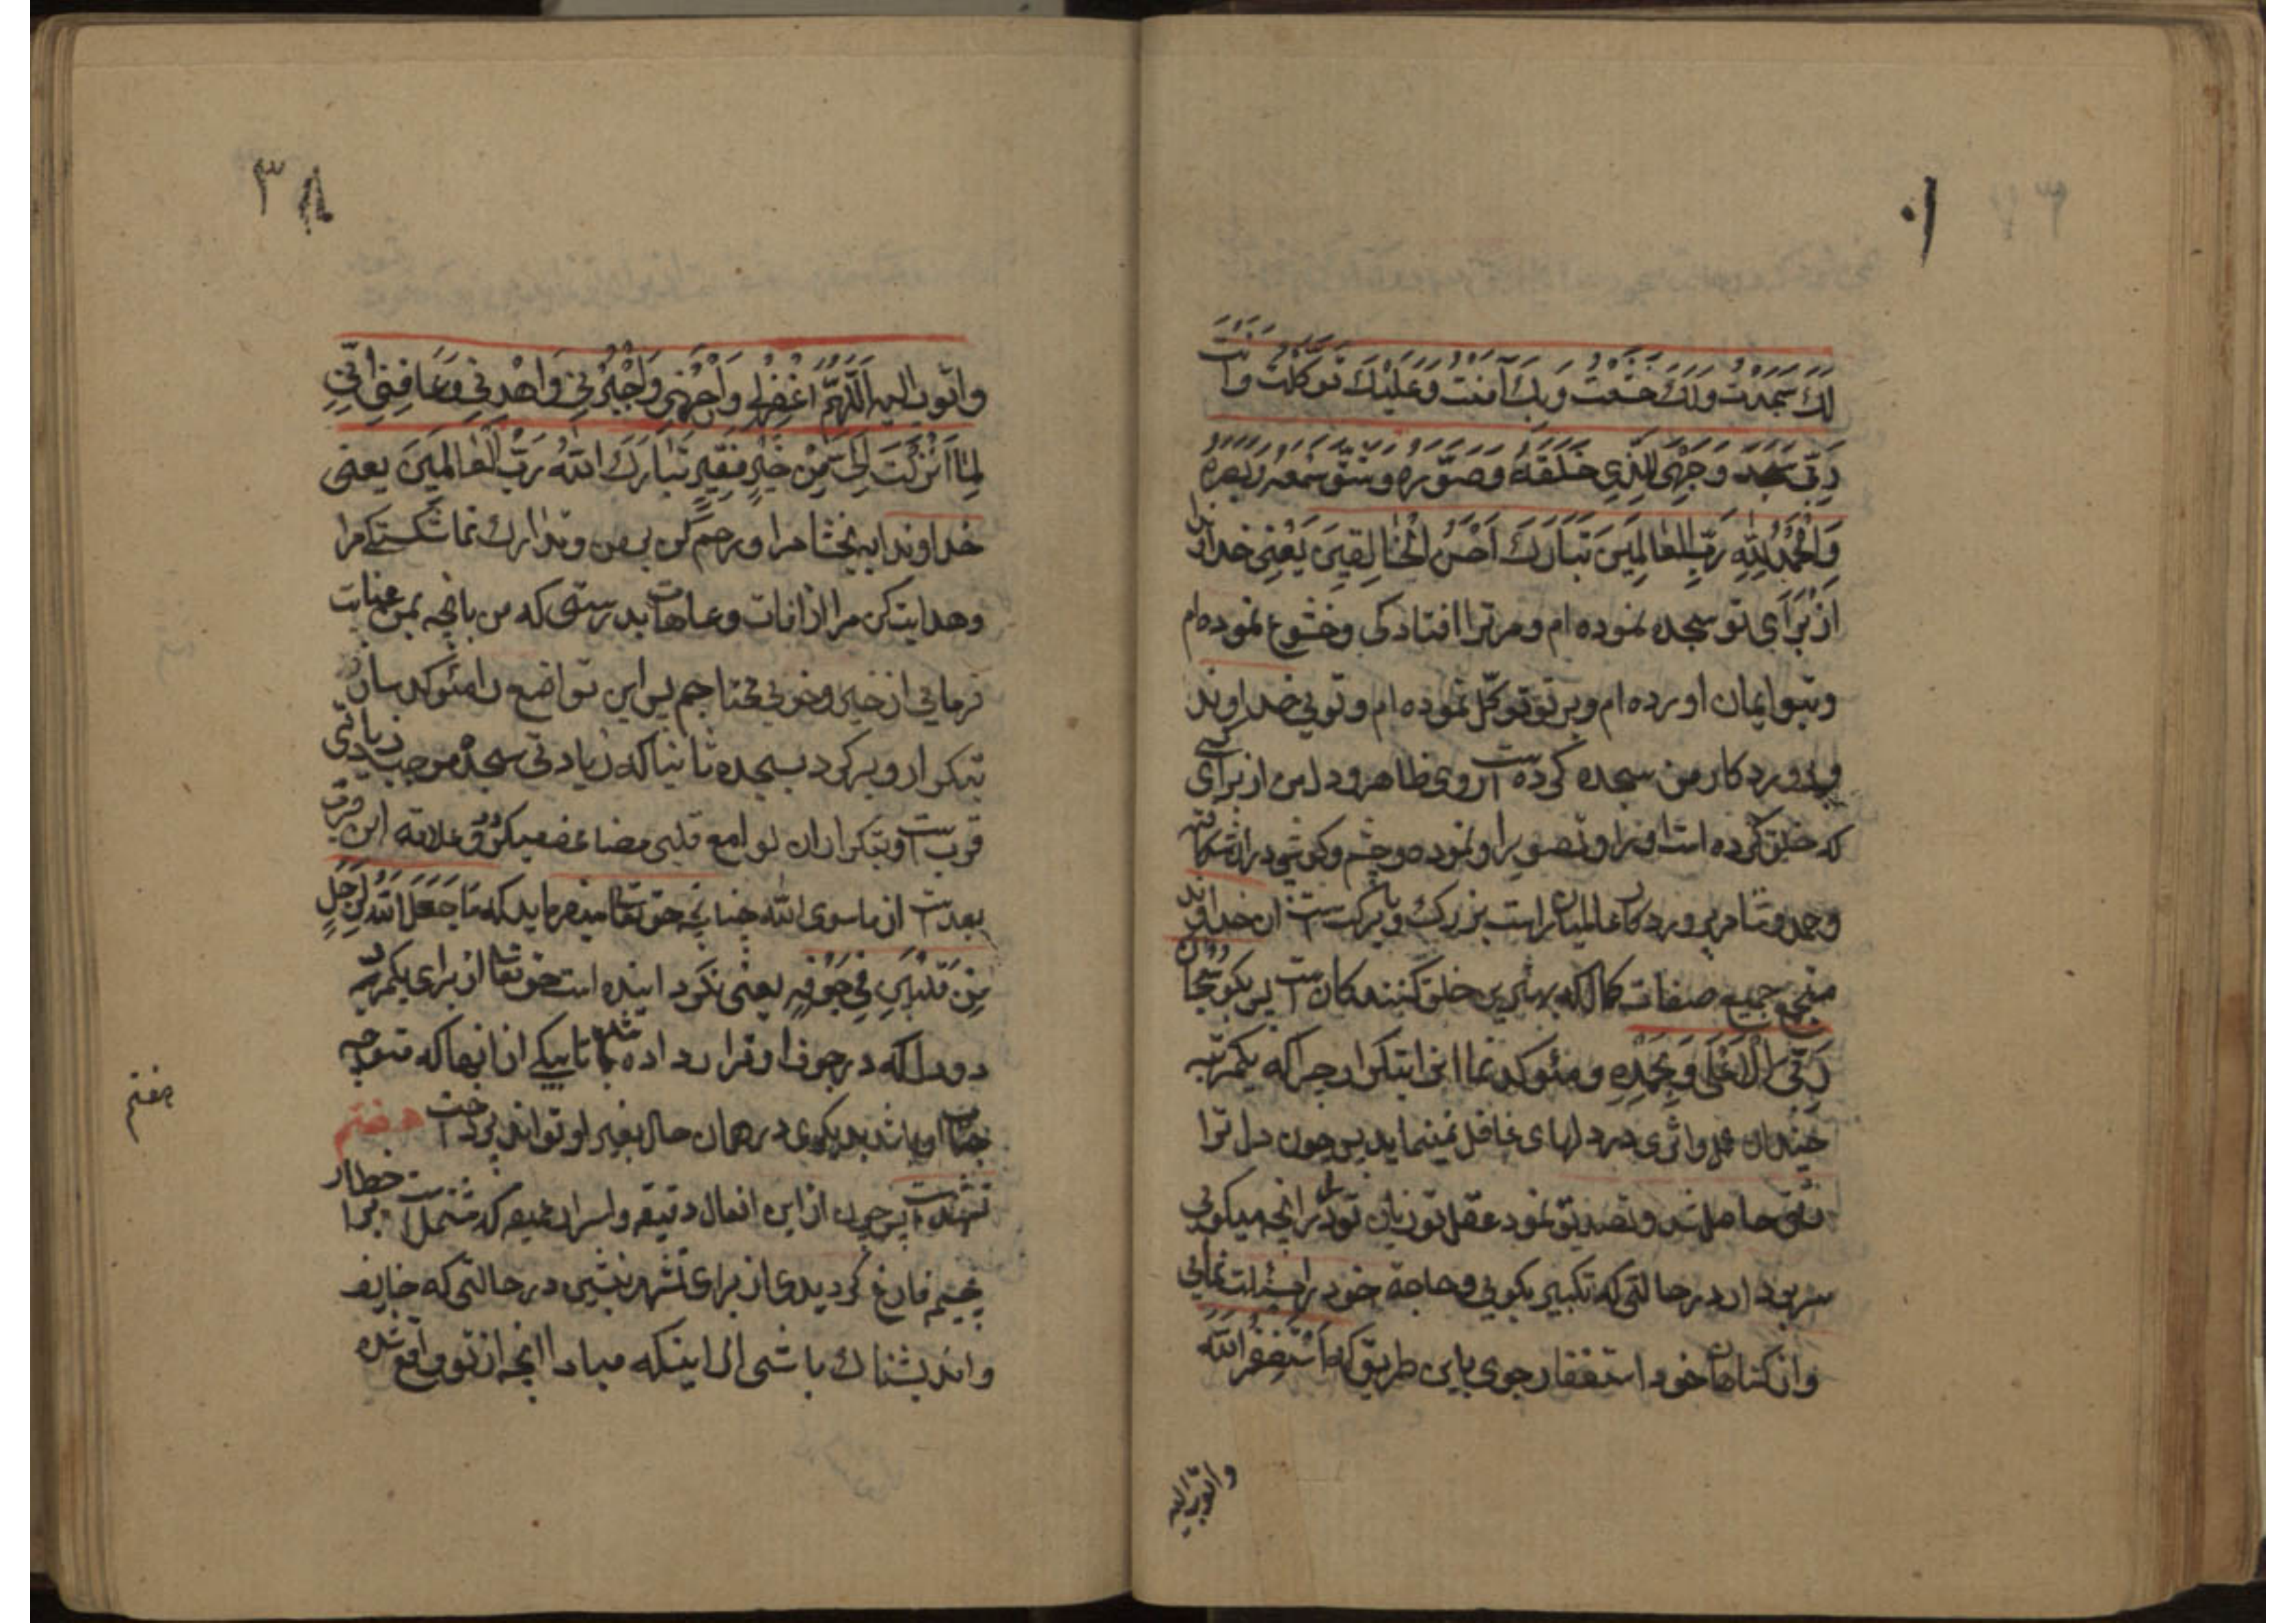 لَكَ سَجَدْتُ وَلَكَ خَشَعْتُ وَبِكَ آمَنْتُ وَعَلَيْكَ تَوَكَّلْتُ وَأَنْتَ
رَبّی سَجَدَ وَجْهِیَ لِلَّذِی خَلَقَهُ وَصَوَّرَهُ وَشَقَّ سَمْعَهُ وَبَصَرَهُ
وَالْحَمْدُ لِلّٰهِ رَبِّ الْعَالَمِينَ تَبَارَكَ اَحْسَنُ الْخَالِقِينَ يَعْنِی خداوندا
از بَرَای تو سجده نموده ام و مر ترا افتادکی و خشوع نموده ام
و بتو ایمان اورده ام و بر تو توکّل نموده ام و توبی خداوند
و پرورد کار من سجده کرده است روی ظاهر و دل من از برای کسی
که خلق کرده است او را و تصویر او نموده و چشم و کوش در ان شکافته
و حمد و ثنا مر پرورد کار عالمیان راست بزرك و با برکت است ان خداوند
جمیع صفات کمال که بهترین خلق کنندکان است پس بکو سُبْحَانَ
رَبّیَ الْاَعْلَی وَبِحَمْدِهِ و مئوکد نما انرا بتکرار چرا که یکمرتبه
چندان اثری در دلهای غافل نمینماید پس چون دل ترا
رقّت حاصل شد و تصدیق نمود عقل تو زبان تو را بر انچه میکوبی
سر بردار در حالتی که تکبیر بکوبی و حاجة خود را مسئلت نمایی
و از کناهان خود استغفار جوی باین طریق که اَسْتَغْفِرُ اللّٰهَ
واتوب الیه
۳۸
واتوب الیه اَللَّهُمَّ اغْفِرْلِی وَارْحَمْنِی وَاجْبُرْنِی وَاهْدِنِی وَعَافِنِی اِنّی
لِمَا اَنْزَلْتَ اِلَیَّ مِنْ خَيْرٍ فَقِيرٌ تَبَارَكَ اللّٰهُ رَبُّ الْعَالَمِينَ یعنی
خداوندا ببخشا مرا و رحم کن بر من و تدارك نما شکستکی مرا
و هدایت کن مرا از افات و عاهات بدرستی که من بانچه بمن عنایت
فرمایی از خیر و خوبی محتاجم پس این تواضع را مئوکد ساز
بتکرار و برکرد بسجده ثانیا که زیادتی سجده موجب زیادتی
قربست و بتکرار ان لوامع قلبی مضاعف میکردد و علاقه این قرب
بعدست از ماسوی اللّه چنانچه حق تعالی میفرماید که مَا جَعَلَ اللّٰهُ لِرَجُلٍ
مِنْ قَلْبَيْنِ فِی جَوْفِهِ یعنی نکردانیده است حق تعالی از برای یکمرد
دو دل که در جوف او قرار داده شده تا بیکی از انها که متوجه
جناب او باشد بدیکری در همان حال بغیر او تواند پرداخت هفتم
تشهدست پس چون از این افعال دقیقه و اسرار که مشتملست بر خطار
فارغ کردیدی از برای تشهد بنشین در حالتی که خایف
و اندیشناك باشی از اینکه مبادا انچه از تو واقع شده
هفتم